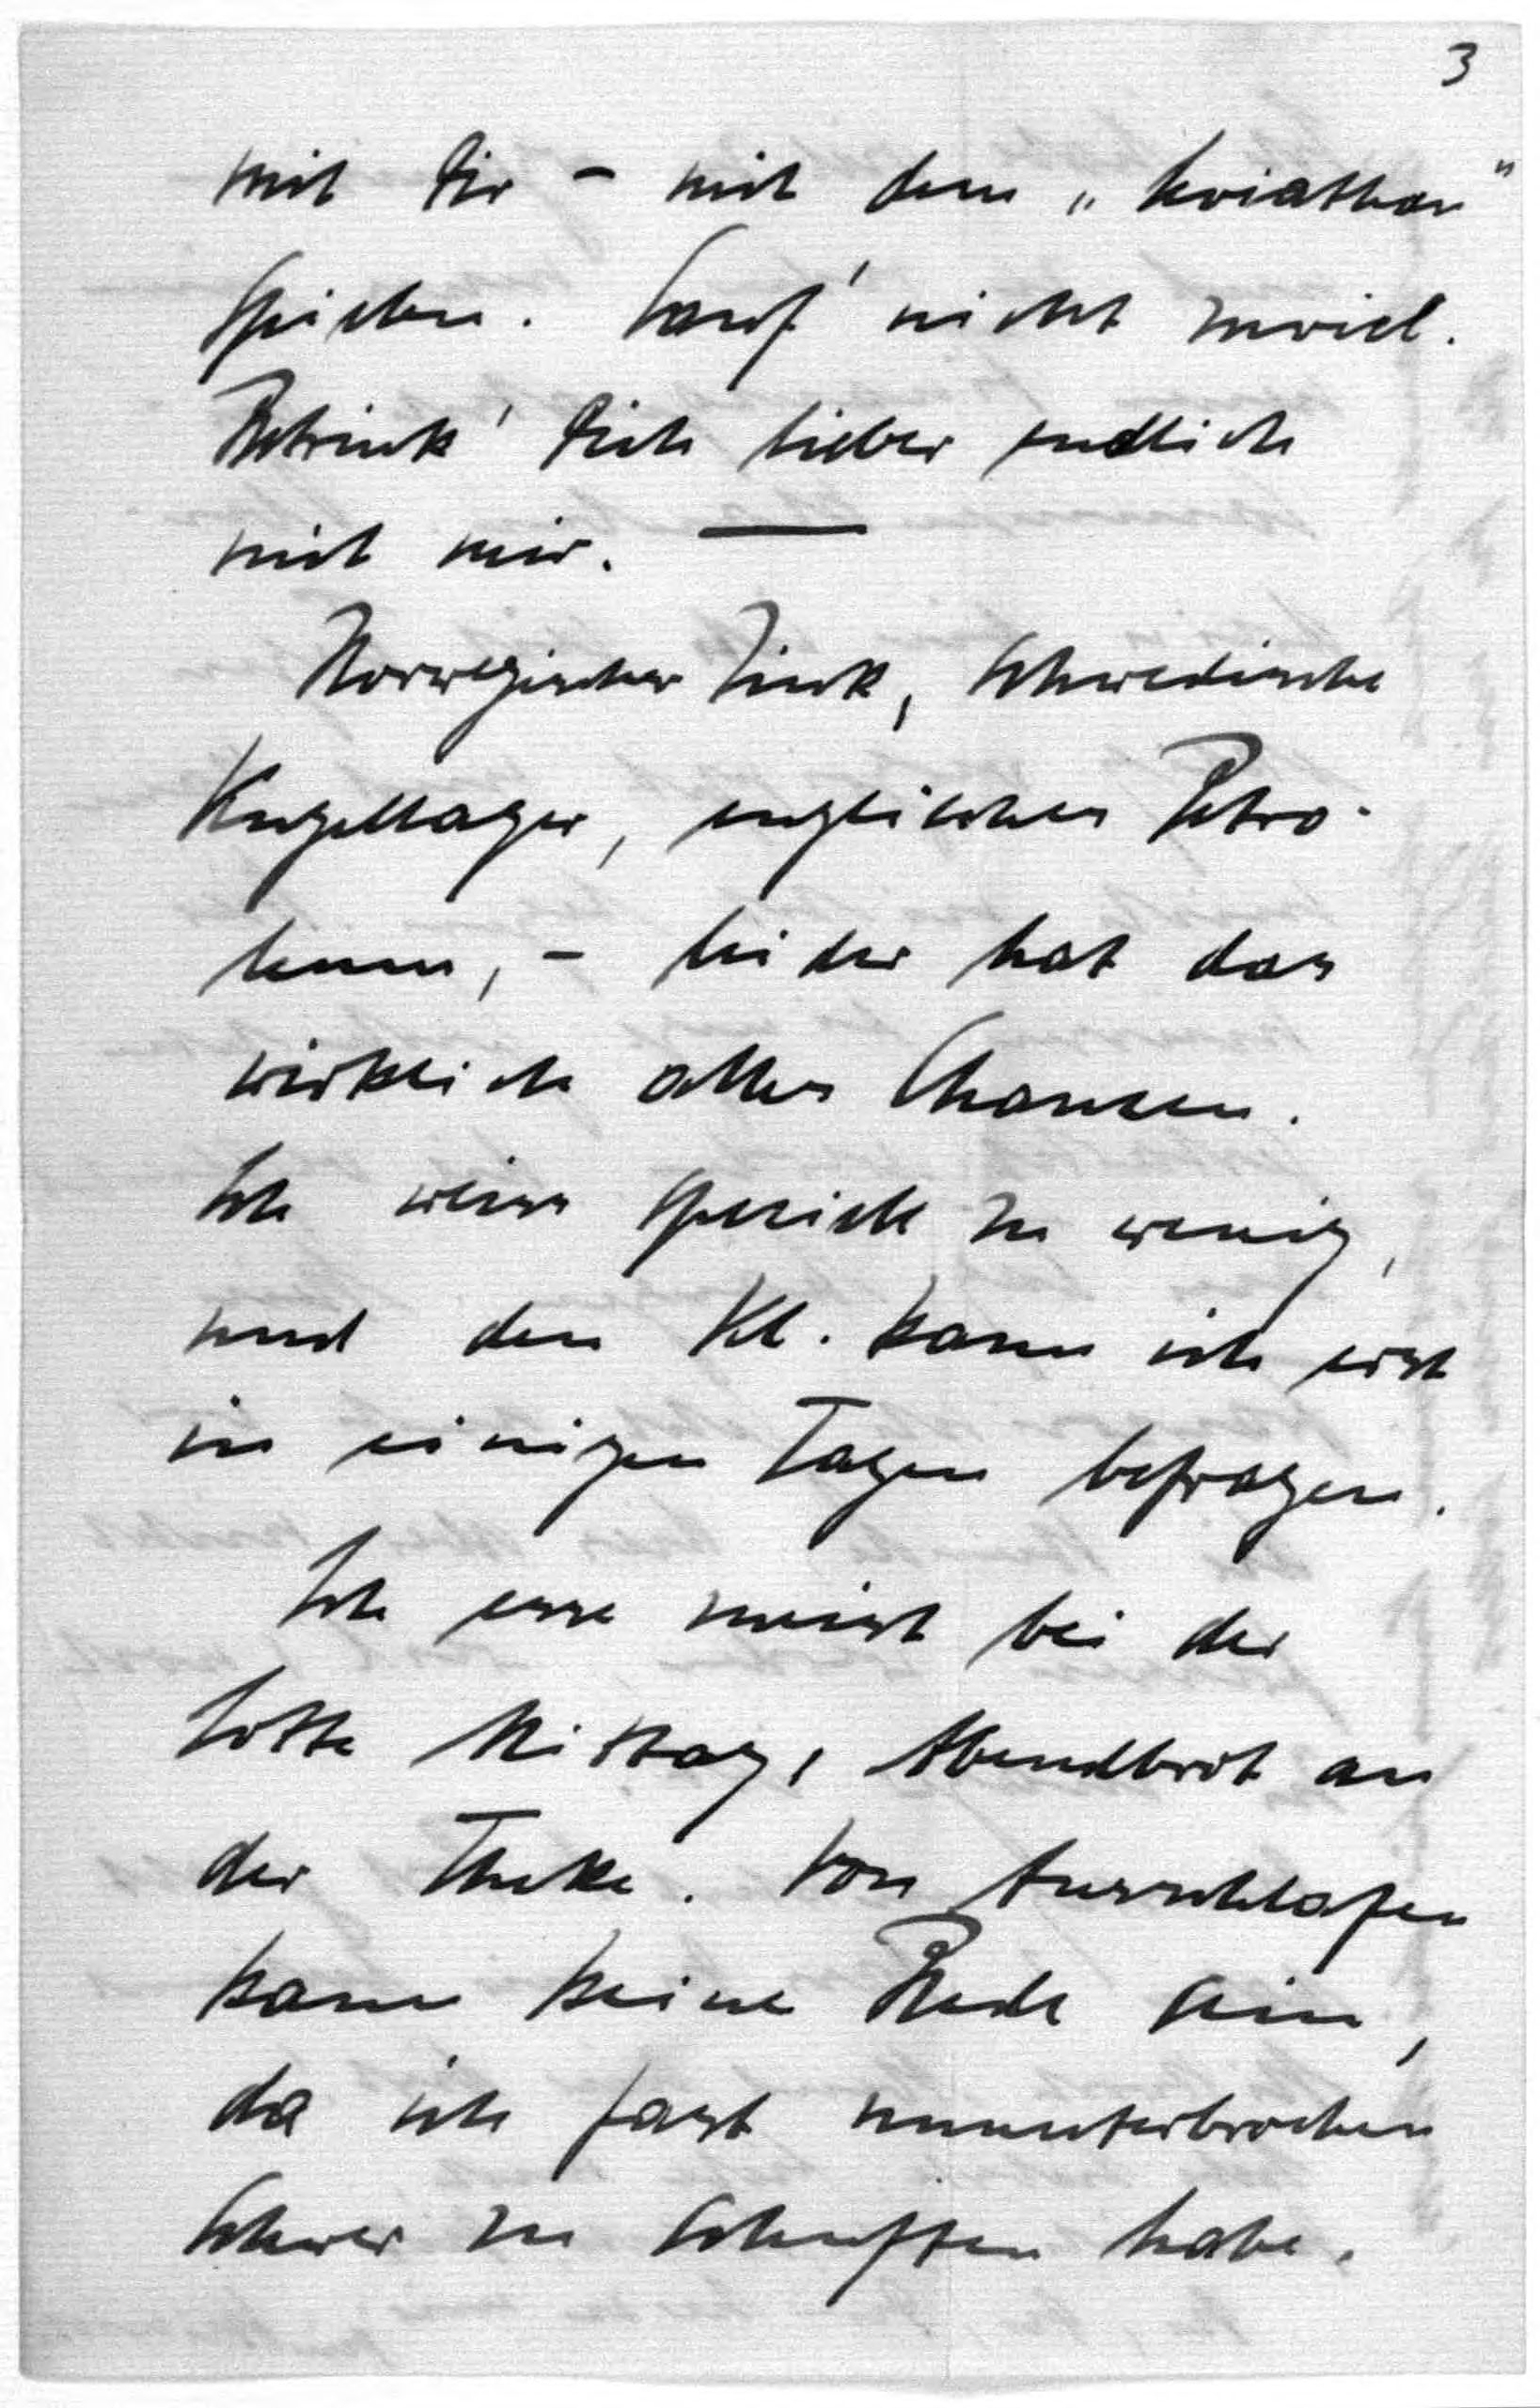 3
mit Dir – mit dem „Leviathan"
spielen. Sauf' nicht zuviel.
Betrink' Dich lieber endlich
mit mir. —
Norwegischer Zink, schwedische
Kugellager, englisches Petro-
leum, – leider hat das
wirklich alles Chancen.
Ich weiss speziell zu wenig,
und den Kl. kann ich erst
in einigen Tagen befragen.
Ich esse meist bei der
Lotte Mittag, Abendbrot an
der Theke. Von Ausschlafen
kann keine Rede sein,
da ich fast ununterbrochen
schwer zu schuften habe.